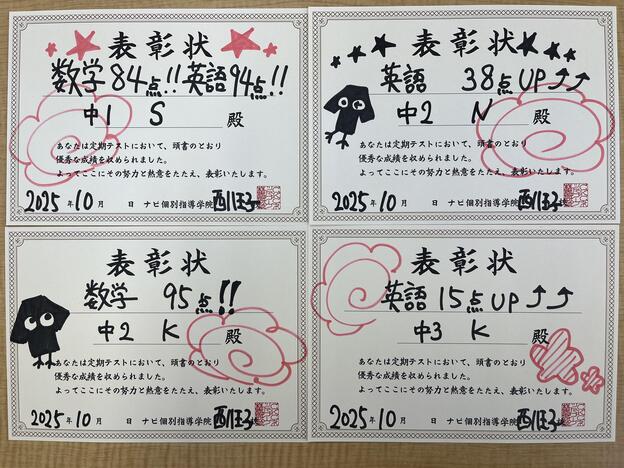 表彰状
数学84点!!英語94点!!
中1 S 殿
あなたは定期テストにおいて、頭書のとおり
優秀な成績を収められました。
よってここにその努力と熱意をたたえ、表彰いたします。
2025年10月 日 ナビ個別指導学院 西八王子校
表彰状
英語 38点UP↑↑
中2 N 殿
あなたは定期テストにおいて、頭書のとおり
優秀な成績を収められました。
よってここにその努力と熱意をたたえ、表彰いたします。
2025年10月 日 ナビ個別指導学院 西八王子校
表彰状
数学 95点!!
中2 K 殿
あなたは定期テストにおいて、頭書のとおり
優秀な成績を収められました。
よってここにその努力と熱意をたたえ、表彰いたします。
2025年10月 日 ナビ個別指導学院 西八王子校
表彰状
英語15点UP↑↑
中3 K 殿
あなたは定期テストにおいて、頭書のとおり
優秀な成績を収められました。
よってここにその努力と熱意をたたえ、表彰いたします。
2025年10月 日 ナビ個別指導学院 西八王子校